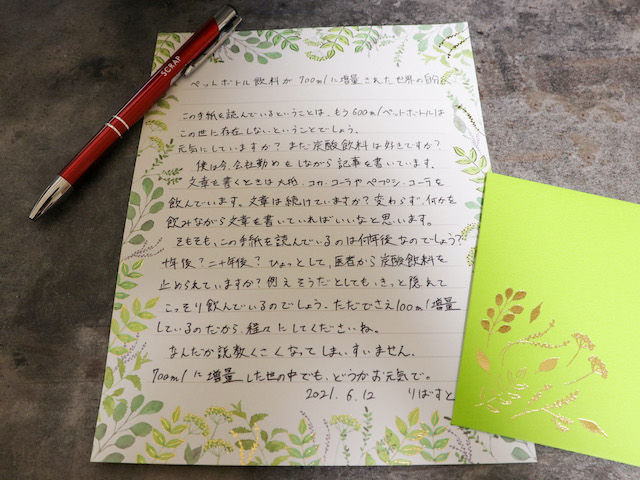 SCRAP
ペットボトル飲料が700mlに増量された世界の自分へ
この手紙を読んでいるということは、もう600mlペットボトルは
この世に存在しないということでしょう。
元気にしていますか？また炭酸飲料は好きですか？
僕は今、会社勤めをしながら記事を書いています。
文章を書くときは大抵、コカ・コーラやペプシ・コーラを
飲んでいます。文章は続けていますか？変わらず、何かを
飲みながら文章を書いていればいいなと思います。
そもそも、この手紙を読んでいるのは何年後なのでしょう？
十年後？二十年後？ひょっとして、医者から炭酸飲料を
止められていますか？例えそうだとしても、きっと隠れて
こっそり飲んでいるのでしょう。ただでさえ100ml増量
しているのだから、程々にしてくださいね。
なんだか説教くさくなってしまいすいません。
700mlに増量した世の中でも、どうかお元気で。
2021.6.12 りばすと